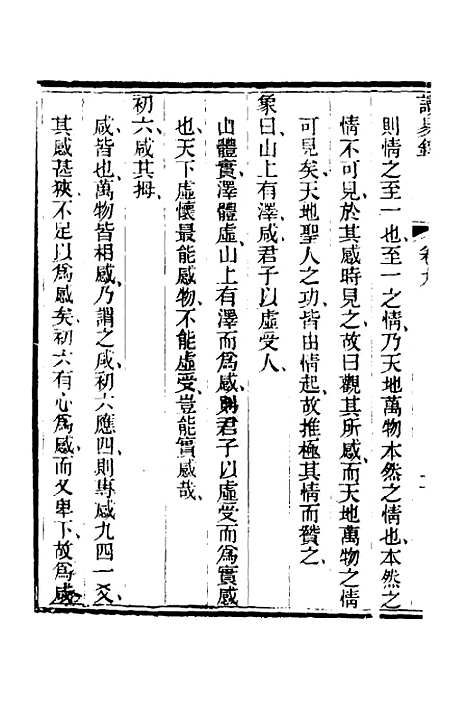 讀易鈔
卷九
則情之至一也至一之情乃天地萬物本然之情也本然之
情不可見於其感時見之故曰觀其所感而天地萬物之情
可見矣天地聖人之功皆由情起故推極其情而贊之
象曰山上有澤咸君子以虛受人
山體實澤體虛山上有澤而爲感則君子以虛受而爲實感
也天下虛懷最能感物不能虛受豈能實感哉
初六咸其拇
咸皆也萬物皆相感乃謂之咸初六應四則專感九四一爻
其感甚狹不足以爲感矣初六有心爲感而又卑下故爲咸